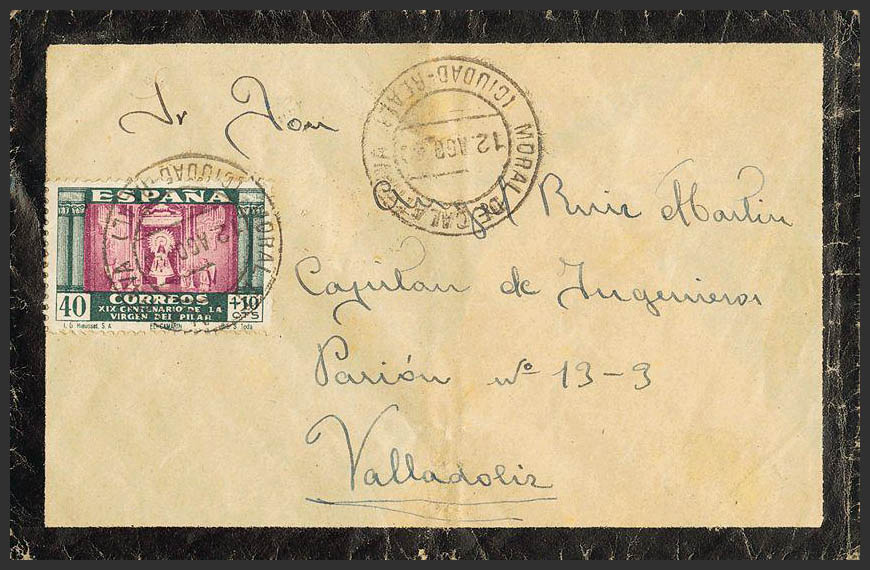 Sr Don
Ruiz Martin
Capitan de Ingenieros
Pasión nº 13-3
Valladolid
MORAL DE CALATRAVA
(CIUDAD-REAL)
12.AGO
ESPAÑA
40
CORREOS
+10
CTS
XIX CENTENARIO DE LA
VIRGEN DEL PILAR
MORAL
(CIUDAD-R
2.AGO